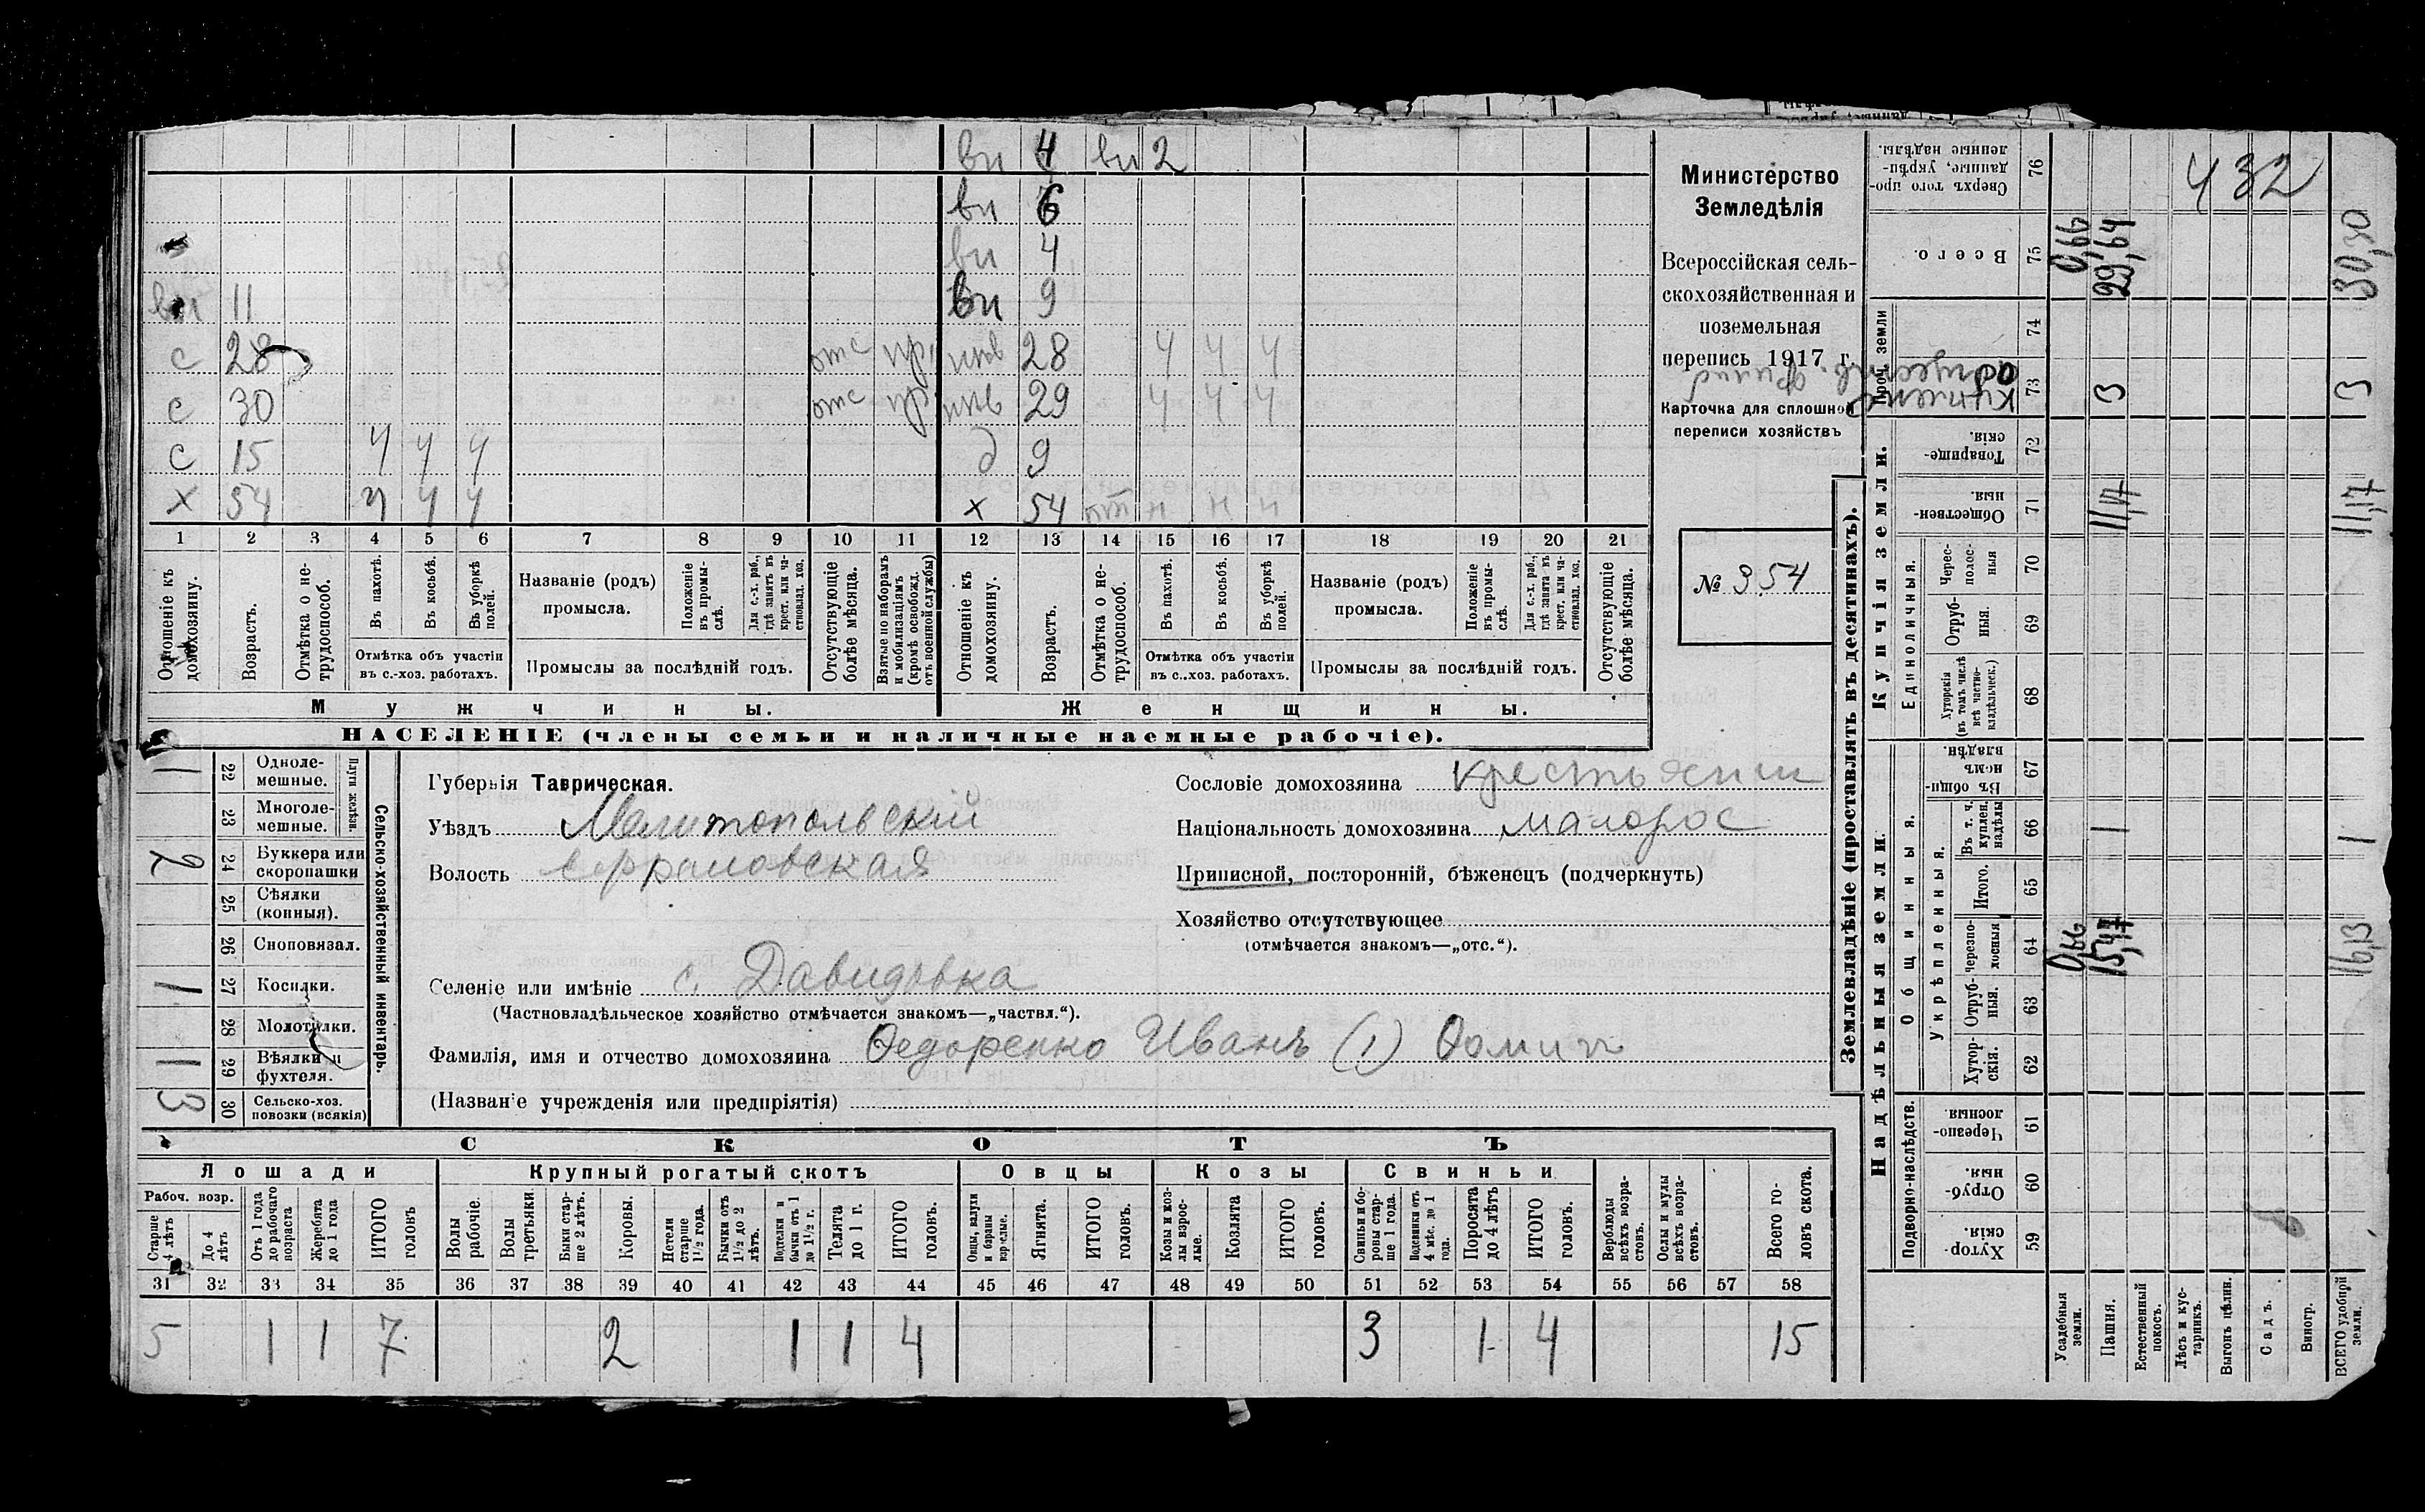 вн 4 вн 2
вн 6
вн 4
вн 11 вн 9
с 28 отс пр. инв 28 ч ч ч
с 30 отс пр инв 29 ч ч ч
с 15 ч ч ч д 9
х 54 ч ч ч х 54 н н н
1 2 3 4 5 6 7 8 9 10 11 12 13 14 15 16 17 18 19 20 21
Отношеніе къ домохозяину.
Возрастъ.
Отмѣтка о не-
трудоспособ.
Въ пахотѣ.
Въ косьбѣ.
Въ уборкѣ
полей.
Отмѣтка объ участіи
въ с.-хоз. работахъ.
Названіе (родъ)
промысла.
Положеніе
въ промы-
слѣ.
Для с.-х. раб.,
гдѣ занятъ въ
крест. или ча-
стновлад. хоз.
Промыслы за послѣдній годъ.
Отсутствующіе
болѣе мѣсяца.
Взятые по наборамъ
и мобилизаціямъ
(кромѣ освобожд.
отъ военной службы)
Отношеніе къ
домохозяину.
Возрастъ.
Отмѣтка о не-
трудоспособ.
Въ пахотѣ.
Въ косьбѣ.
Въ уборкѣ
полей.
Отмѣтка объ участіи
въ с..хоз. работахъ.
Названіе (родъ)
промысла.
Положеніе
въ промы-
слѣ.
Для с.-х. раб.,
гдѣ занята въ
крест. или ча-
стновлад. хоз.
Промыслы за послѣдній годъ.
Отсутствующіе
болѣе мѣсяца.
Мужчины.
Женщины.
НАСЕЛЕНІЕ (члены семьи и наличные наемные рабочіе).
Министерство
Земледѣлія
Всероссійская сель-
скохозяйственная и
поземельная
перепись 1917 г.
Карточка для сплошной
переписи хозяйствъ
№ 354
1 22 Однoле-
мешные.
23 Многоле-
мешные.
Плуги желѣзн.
2 24 Буккера или
скоропашки
25 Сѣялки
(конныя).
26 Сноповязал.
1 27 Косилки.
28 Молотилки.
1 29 Вѣялки и
фухтеля.
3 30 Сельско-хоз.
повозки (всякія)
Сельско-хозяйственный инвентарь.
Губернія Таврическая.
Уѣздъ Мелитопольскій
Волость Ефремовская
Селеніе или имѣніе с. Давидовка
(Частновладѣльческое хозяйство отмѣчается знакомъ—„частвл.“).
Фамилія, имя и отчество домохозяина Федоренко Иванъ (1) Фомичъ
(Названіе учрежденія или предпріятія)
Сословіе домохозяина крестьянин
Національность домохозяина малорос
Приписной, посторонній, бѣженецъ (подчеркнуть)
Хозяйство отсутствующее
(отмѣчается знакомъ—„отс.“).
СКОТЪ
Лошади
Крупный рогатый скотъ
Овцы
Козы
Свиньи
Рабоч. возр.
Старше
4 лѣтъ
До 4
лѣтъ
Отъ 1 года
до рабочаго
возраста
Жеребята
до 1 года
ИТОГО
головъ
Волы
рабочіе.
Волы
третьяки.
Быки стар-
ше 2 лѣтъ.
Коровы.
Нетели
старше
1½ года.
Бычки отъ
1½ до 2
лѣтъ.
Подтелки и
бычки отъ 1
до 1½ г.
Телята
до 1 г.
ИТОГО
головъ.
Овцы, валухи
и бараны
взрослые.
Ягнята.
ИТОГО
головъ.
Козы и коз-
лы взрос-
лые.
Козлята
ИТОГО
головъ.
Свиньи и бо-
ровы стар-
ше 1 года.
Подсвинки отъ
4 мѣс. до 1
года.
Поросята
до 4 лѣтъ
ИТОГО
головъ.
Верблюды
всѣхъ возра-
стовъ.
Ослы и мулы
всѣхъ возра-
стовъ.
Всего го-
ловъ скота.
31 32 33 34 35 36 37 38 39 40 41 42 43 44 45 46 47 48 49 50 51 52 53 54 55 56 57 58
5 1 1 7 2 1 1 4 3 1 4 15
Землевладѣніе (проставлять въ десятинахъ).
Надѣльныя земли.
Купчія земли.
Проч. земли
Общинныя.
Укрѣпленныя.
Единоличныя.
Подворно-наслѣдств.
432
76 Сверхъ того про-
данные, укрѣп-
ленные надѣлы.
75 Всего. 0,66 29,64 30,30
74
73 3 3
72 Товарище-
скія.
71 Обществен-
ныя. 11,17 11,17
70 Черес-
полос-
ныя
69 Отруб-
ныя.
68 Хуторскія
(въ томъ числѣ
всѣ частно-
владѣльческ.)
67 Въ общин-
номъ
владѣн.
66 Въ т. ч.
куплен.
надѣлы 1 1
65 Итого.
64 Черезпо-
лосныя 0,66 15,47 16,13
63 Отруб-
ныя.
62 Хутор-
скія.
61 Черезпо-
лосныя
60 Отруб-
ныя.
59 Хутор-
скія.
Усадебныя
земли.
Пашня.
Естественный
покосъ.
Лѣсъ и кус-
тарникъ.
Выгонъ цѣлин.
Садъ.
Виногр.
ВСЕГО удобной
земли.